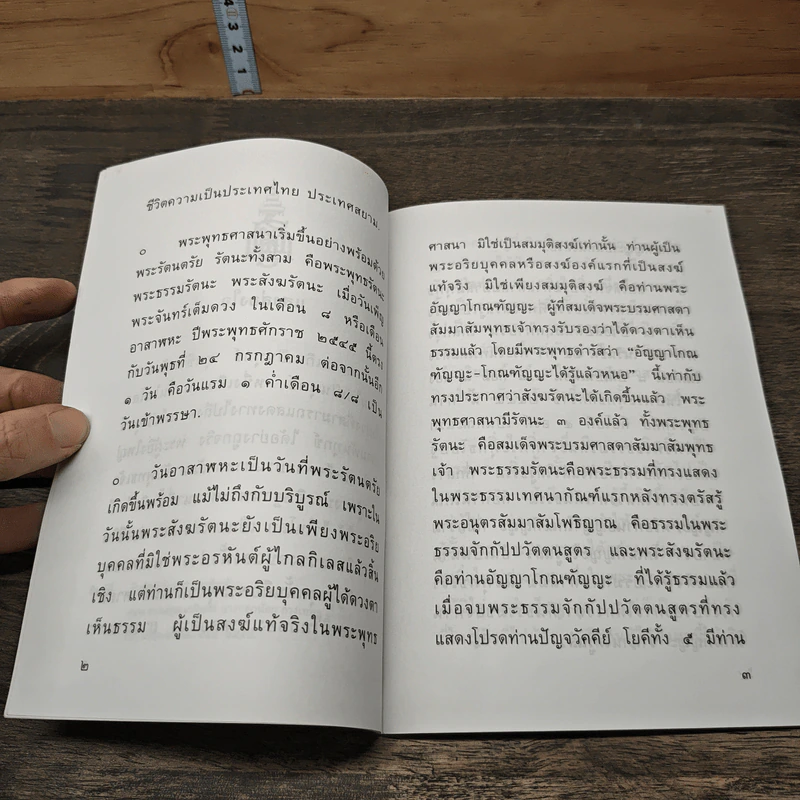 ชีวิตความเป็นประเทศไทย ประเทศสยาม.
๐ พระพุทธศาสนาเริ่มขึ้นอย่างพร้อมด้วย
พระรัตนตรัย รัตนะทั้งสาม คือพระพุทธรัตนะ
พระธรรมรัตนะ พระสังฆรัตนะ เมื่อวันเพ็ญ
พระจันทร์เต็มดวง ในเดือน ๘ หรือเดือน
อาสาฬหะ ปีพระพุทธศักราช ๒๕๔๕ นี้ตรง
กับวันพุธที่ ๒๔ กรกฎาคม ต่อจากนั้นอีก
๑ วัน คือวันแรม ๑ ค่ำเดือน ๘/๘ เป็น
วันเข้าพรรษา.
๐ วันอาสาฬหะเป็นวันที่พระรัตนตรัย
เกิดขึ้นพร้อม แม้ไม่ถึงกับบริบูรณ์ เพราะใน
วันนั้นพระสังฆรัตนะยังเป็นเพียงพระอริย
บุคคลที่มิใช่พระอรหันต์ผู้ไกลกิเลสแล้วสิ้น
เชิง แต่ท่านก็เป็นพระอริยบุคคลผู้ได้ดวงตา
เห็นธรรม ผู้เป็นสงฆ์แท้จริงในพระพุทธ
๒
ศาสนา มิใช่เป็นสมมุติสงฆ์เท่านั้น ท่านผู้เป็น
พระอริยบุคคลหรือสงฆ์องค์แรกที่เป็นสงฆ์
แท้จริง มิใช่เพียงสมมุติสงฆ์ คือท่านพระ
อัญญาโกณฑัญญะ ผู้ที่สมเด็จพระบรมศาสดา
สัมมาสัมพุทธเจ้าทรงรับรองว่าได้ดวงตาเห็น
ธรรมแล้ว โดยมีพระพุทธดำรัสว่า “อัญญาโกณ
ฑัญญะ-โกณฑัญญะได้รู้แล้วหนอ” นี้เท่ากับ
ทรงประกาศว่าสังฆรัตนะได้เกิดขึ้นแล้ว พระ
พุทธศาสนามีรัตนะ ๓ องค์แล้ว ทั้งพระพุทธ
รัตนะ คือสมเด็จพระบรมศาสดาสัมมาสัมพุทธ
เจ้า พระธรรมรัตนะคือพระธรรมที่ทรงแสดง
ในพระธรรมเทศนากัณฑ์แรกหลังทรงตรัสรู้
พระอนุตรสัมมาสัมโพธิญาณ คือธรรมในพระ
ธรรมจักกัปปวัตตนสูตร และพระสังฆรัตนะ
คือท่านอัญญาโกณฑัญญะ ที่ได้รู้ธรรมแล้ว
เมื่อจบพระธรรมจักกัปปวัตตนสูตรที่ทรง
แสดงโปรดท่านปัญจวัคคีย์ โยคีทั้ง ๕ มีท่าน
๓
4
3
2
1